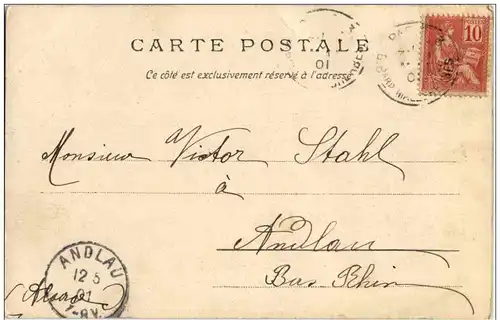 CARTE POSTALE
Ce côté est exclusivement réservé à l'adresse
10
POSTES
PARIS
01
Monsieur Victor Stahl
à
Andlau
Bas Rhin
(Alsace)
ANDLAU
12 5
01
7-8V.